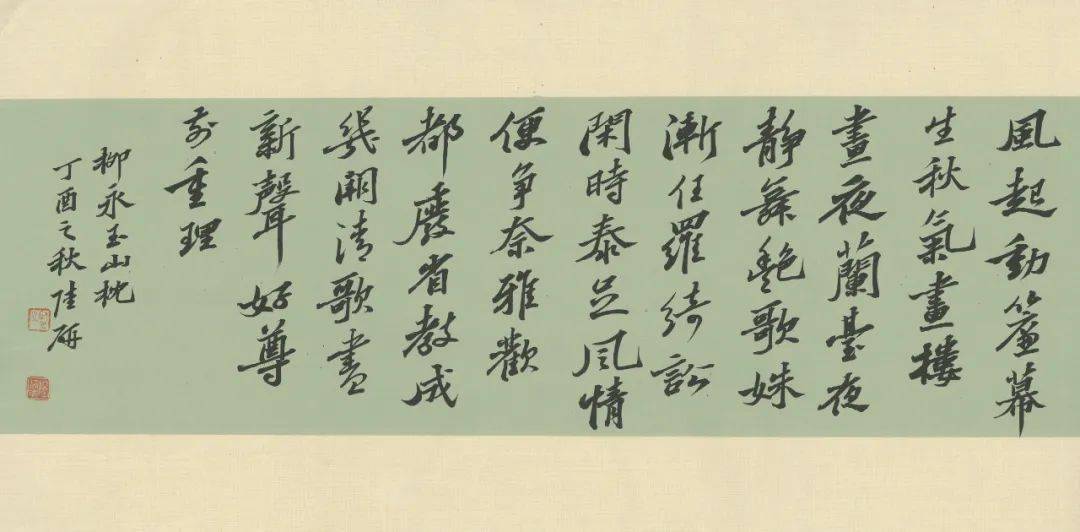 風起動簾幕
生秋氣畫樓
晝夜蘭臺夜
靜舞艷歌姝
漸任羅綺訟
閑時泰足風情
便爭奈雅歡
都廢省教成
幾闋清歌盡
新聲好尊
前重理
柳永玉山枕
丁酉之秋陸研